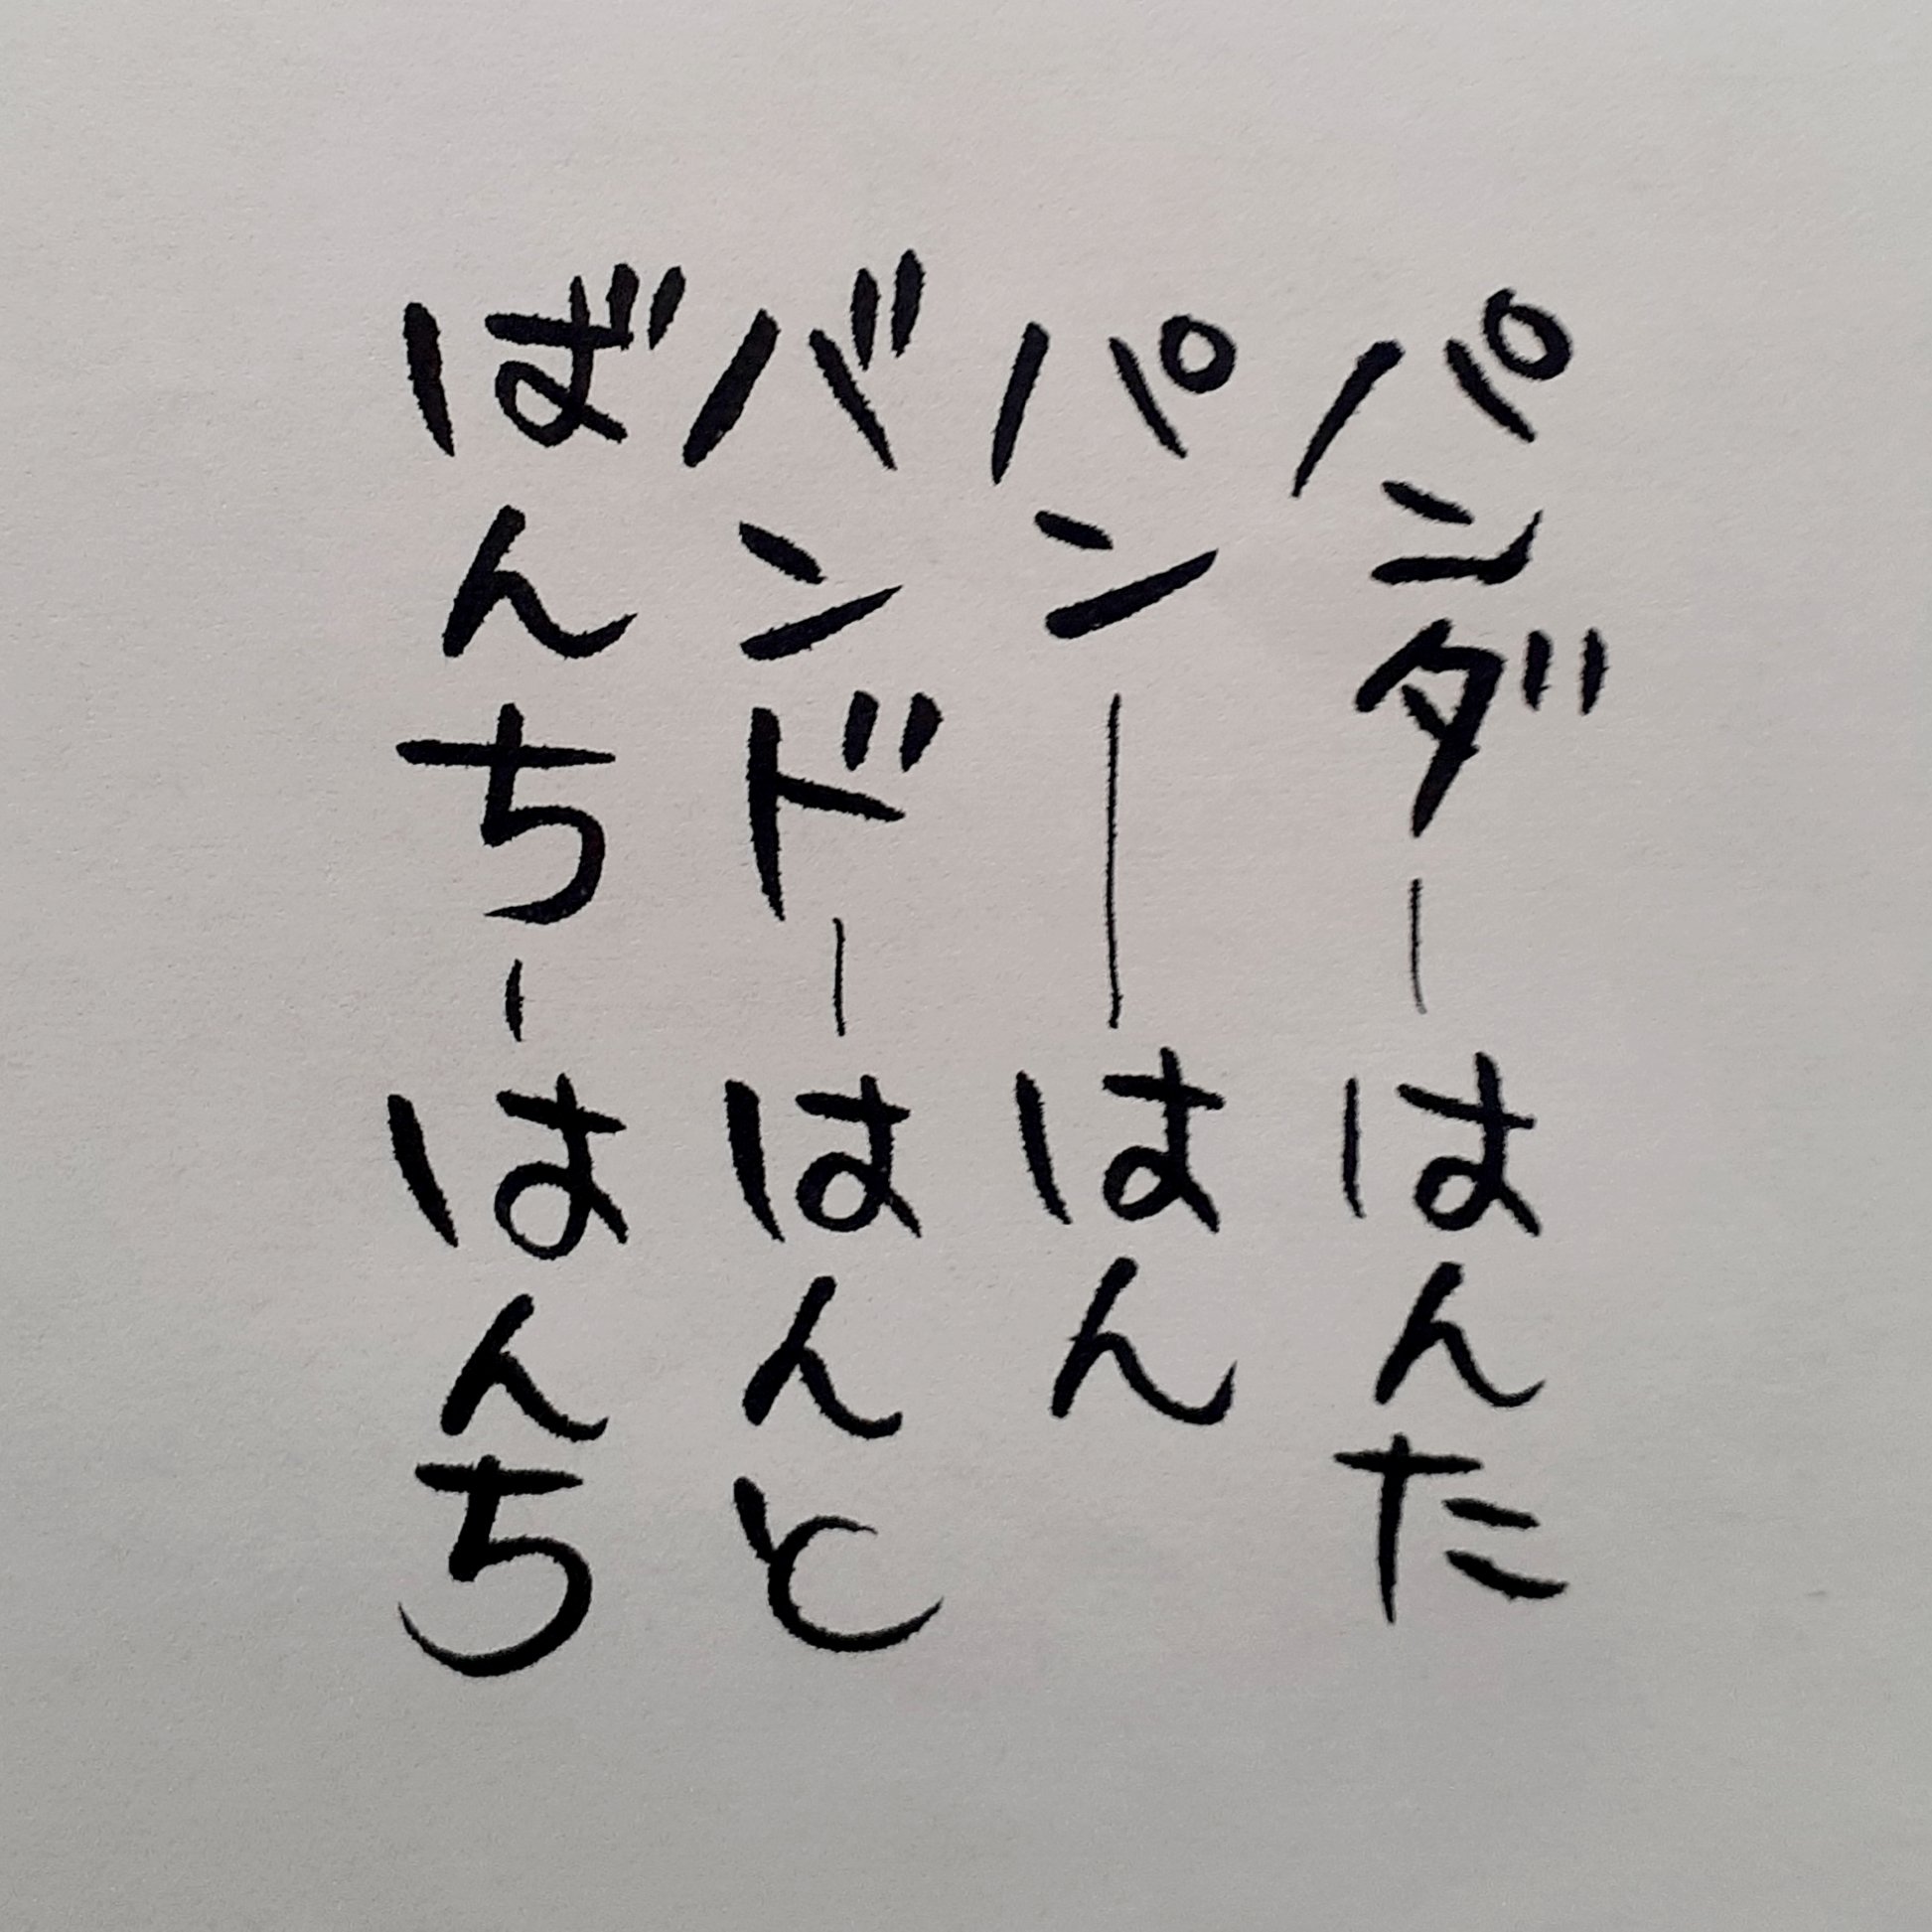 パンダーはんた
パンーはん
バンドーはんと
ばんちーはんち